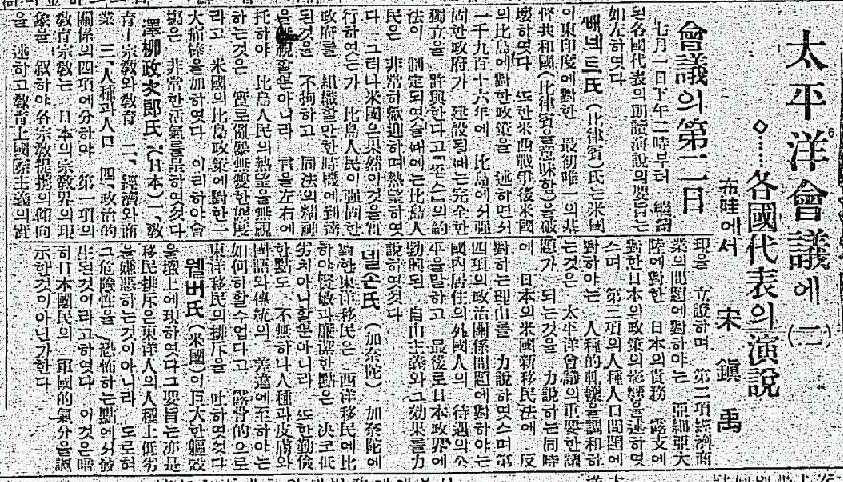 太平洋會議에 (二)
◇……各國代表의演說
布哇에서 宋鎭禹
會議의第二日
七月一日下午二時부터 繼續
된各國代表의 演說의要旨는
如左하엿다
氏(比律賓)氏는米國
이東印度에對한 最初唯一의基
督共和國(比律賓을意味함)을破
壞하엿다 또한米西戰爭後米國
의比島에對한政策을 述하면서
一千九百十六年에 比島에서强
固한政府가 建設된때는完全한
獨立을 許與한다고 約
法이 制定되엿슬때에는比島人
民은 非常히歡迎하며 하엿
다 그러나米國은果然이것을實
行하엿는가 比島人民이强固한
政府를 組織할만한時機에到達
된것을 不拘하고 同法의精神
을無視할뿐아니라 言을左右에
托하야 比島人民의熱望을無視
하는것은 實로 態度
라고 米國의比島政策에對한一
大痛棒을加하엿다 이리하야會
場은 非常한活氣를呈하엿섯다
澤柳政太郞氏(日本) 一、敎
育、宗敎와敎育 二、經濟와商
業 三、人種과人口 四、政治的
關係의四項에分하야 第一項의
敎育宗敎는 日本의宗敎界의現
象을 敍하야各宗敎提携의傾向
을 述하고敎育上國際主義의實
現을 立說하며 第二項經濟商
業의問題에對하야는 亞細亞大
陸에對한 日本의責務 露支에
對한日本의政策의影響을述하엿
스며 第三項의人種人口問題에
對하야는 人種的軋轢을調和하
는것은 太平洋會議의重要한議
題가 되는것을 力說하는同時
에 日本의米國新移民法에 反
對하는理由를 力說하엿스며第
四項의政治關係問題에對하야는
國內居住의外國人의 待遇의公
平을말하고 最後로日本政界에
勃興된 自由主義와그效果를力
說하엿다
넬손氏(加奈陀) 加奈陀에
對한東洋移民은 西洋移民에比
하야 敏과廉潔한點은 決코低
劣치아니할뿐아니라 또한勤儉
한點도 不無하나人種과皮膚와
國語와傳統의 差違에至하야는
如何히할수업다고 露骨的으로
東洋移民의排斥을 吐하엿고
웰버氏(米國)이巨大한軀殼
을壇上에現하엿다그要旨는亦是
移民排斥은東洋人의人種上低劣
을嫌惡하는것이아니라 도로혀
그危險性을 恐怖하는點에서發
生된것이라고하엿다 이것은暗
히日本國民의 軍國的氣分을諷
示한것이아닌가한다